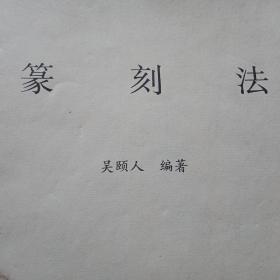 篆刻法
吴颐人 编著